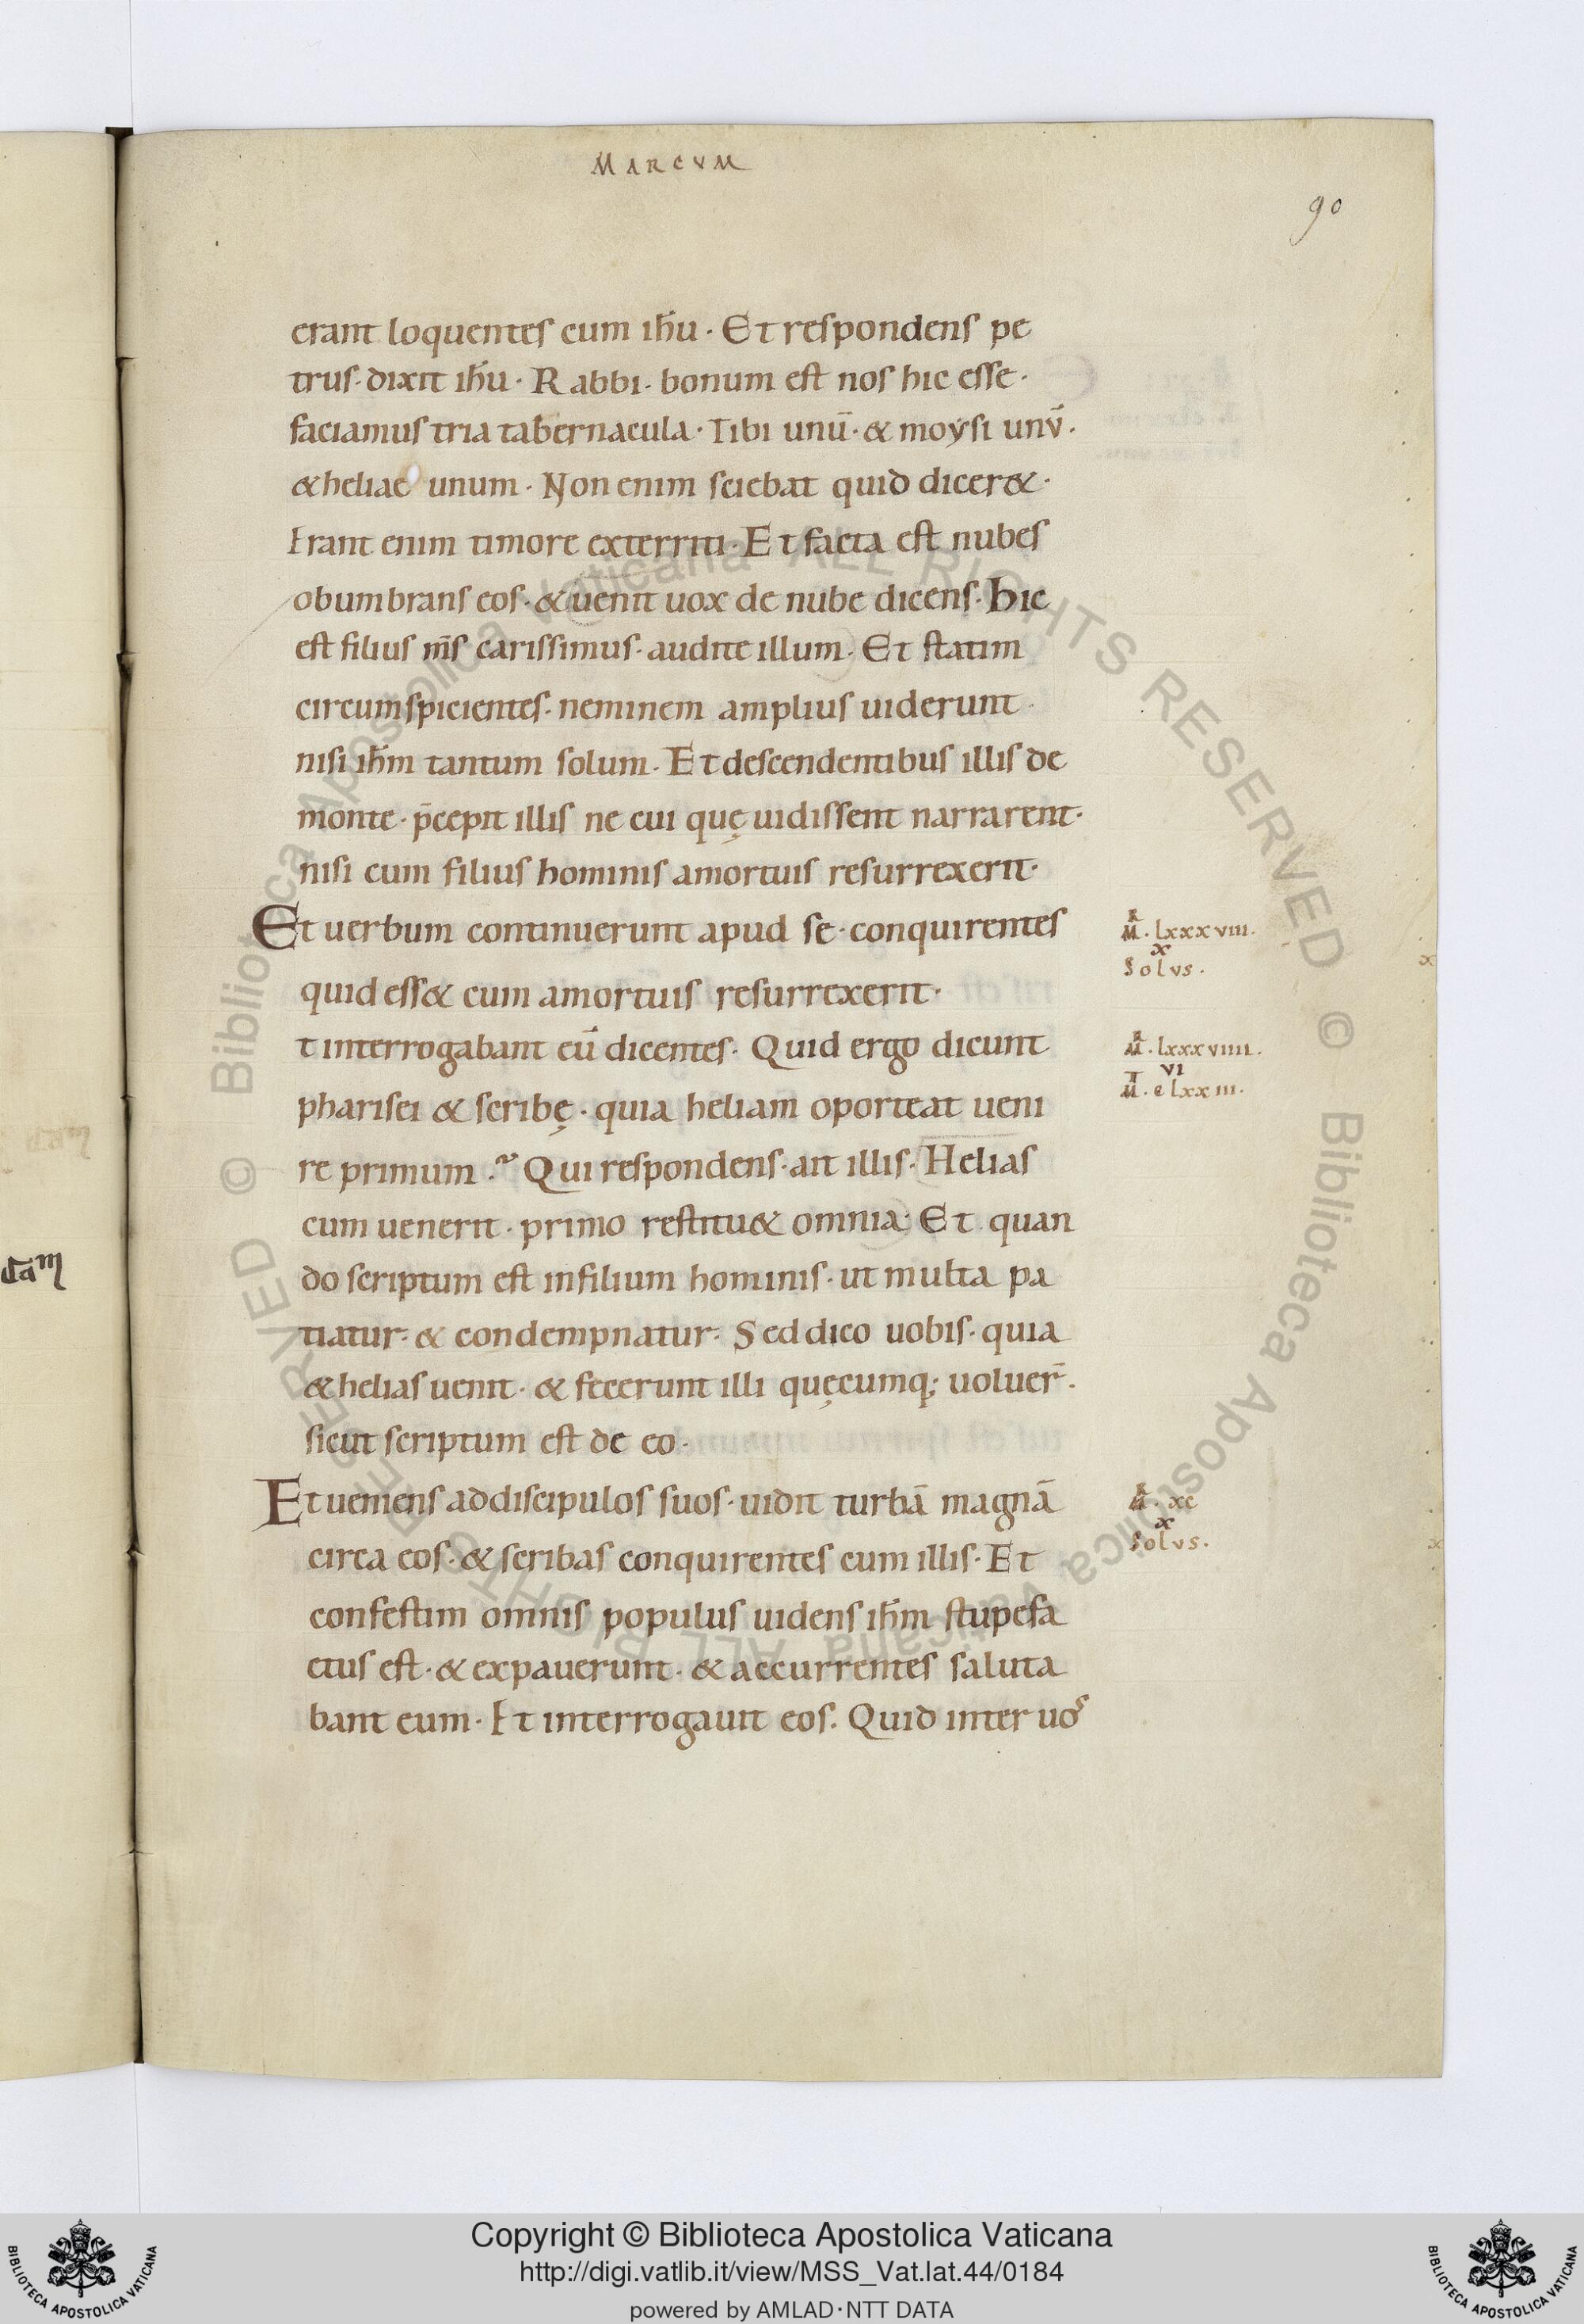 MARCVM
90
erant loquentes cum ih̄u · Et respondens pe
trus · dixit ih̄u · Rabbi · bonum est nos hic esse ·
faciamus tria tabernacula · Tibi unū · & moysi unv̄ ·
& heliae unum · Non enim sciebat quid dicer& ·
Erant enim timore exterriti · Et facta est nubes
obumbrans eos · & uenit uox de nube dicens · Hic
est filius m̄s carissimus · audite illum · Et statim
circumspicientes · neminem amplius uiderunt
nisi ih̄m tantum solum · Et descendentibus illis de
monte · p̄cepit illis ne cui quę uidissent narrarent ·
nisi cum filius hominis amortuis resurrexerit ·
Et uerbum continuerunt apud se · conquirentes
R̄ M · lxxxviii ·
x
Solvs ·
quid ess& cum amortuis resurrexerit ·
t interrogabant eū dicentes · Quid ergo dicunt
M · lxxxviiii ·
vi
M · clxxiii ·
pharisei & scribę · quia heliam oporteat ueni
re primum ? Qui respondens · ait illis · Helias
cum uenerit · primo restitu& omnia · Et quan
do scriptum est in filium hominis · ut multa pa
tiatur · & condempnatur · Sed dico uobis · quia
& helias uenit · & fecerunt illi quęcumq; uoluer̄ ·
sicut scriptum est de eo ·
Et ueniens ad discipulos suos · uidit turbā magnā
M · xc
x
Solvs ·
circa eos · & scribas conquirentes cum illis · Et
confestim omnis populus uidens ih̄m stupefa
ctus est · & expauerunt · & accurrentes saluta
bant eum · Et interrogauit eos · Quid inter uos
dām
© Biblioteca Apostolica Vaticana ALL RIGHTS RESERVED
© Biblioteca Apostolica Vaticana ALL RIGHTS RESERVED
Copyright © Biblioteca Apostolica Vaticana
http://digi.vatlib.it/view/MSS_Vat.lat.44/0184
powered by AMLAD · NTT DATA
BIBLIOTECA APOSTOLICA VATICANA
BIBLIOTECA APOSTOLICA VATICANA